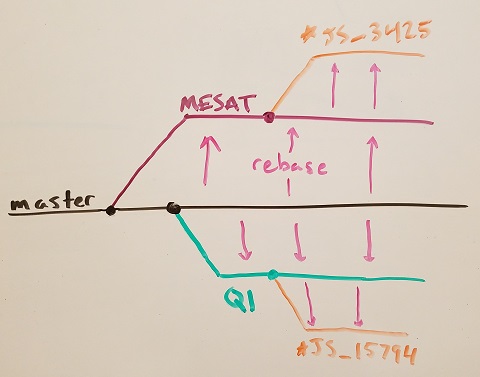 *JS_3425
MESAT
rebase
master
Q1
*JS_15794